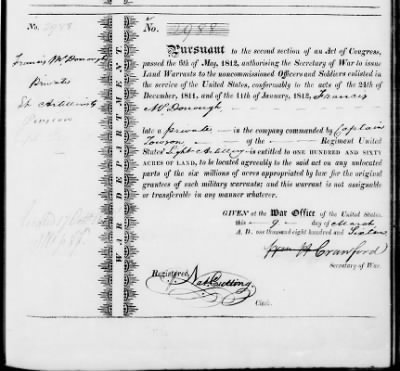 No. 2988
Francis McDonough
Private
Lt. Artillery
WAR DEPARTMENT.
No. 2988
Pursuant to the second section of an Act of Congress,
passed the 6th of May, 1812, authorising the Secretary of War to issue
Land Warrants to the noncommissioned Officers and Soldiers enlisted in
the service of the United States, conformably to the acts of the 24th of
December, 1811, and of the 11th of January, 1812, Francis
McDonough
late a private in the company commanded by Captain
Towson of the Regiment United
States Light Artillery is entitled to ONE HUNDRED AND SIXTY
ACRES OF LAND, to be located agreeably to the said act on any unlocated
parts of the six millions of acres appropriated by law for the original
grantees of such military warrants; and this warrant is not assignable
or transferable in any manner whatever.
GIVEN at the War Office of the United States,
this 9 day of March
A. D. one thousand eight hundred and Sixteen
Wm H Crawford
Secretary of War.
Registered, Nat Cutting
Clerk.